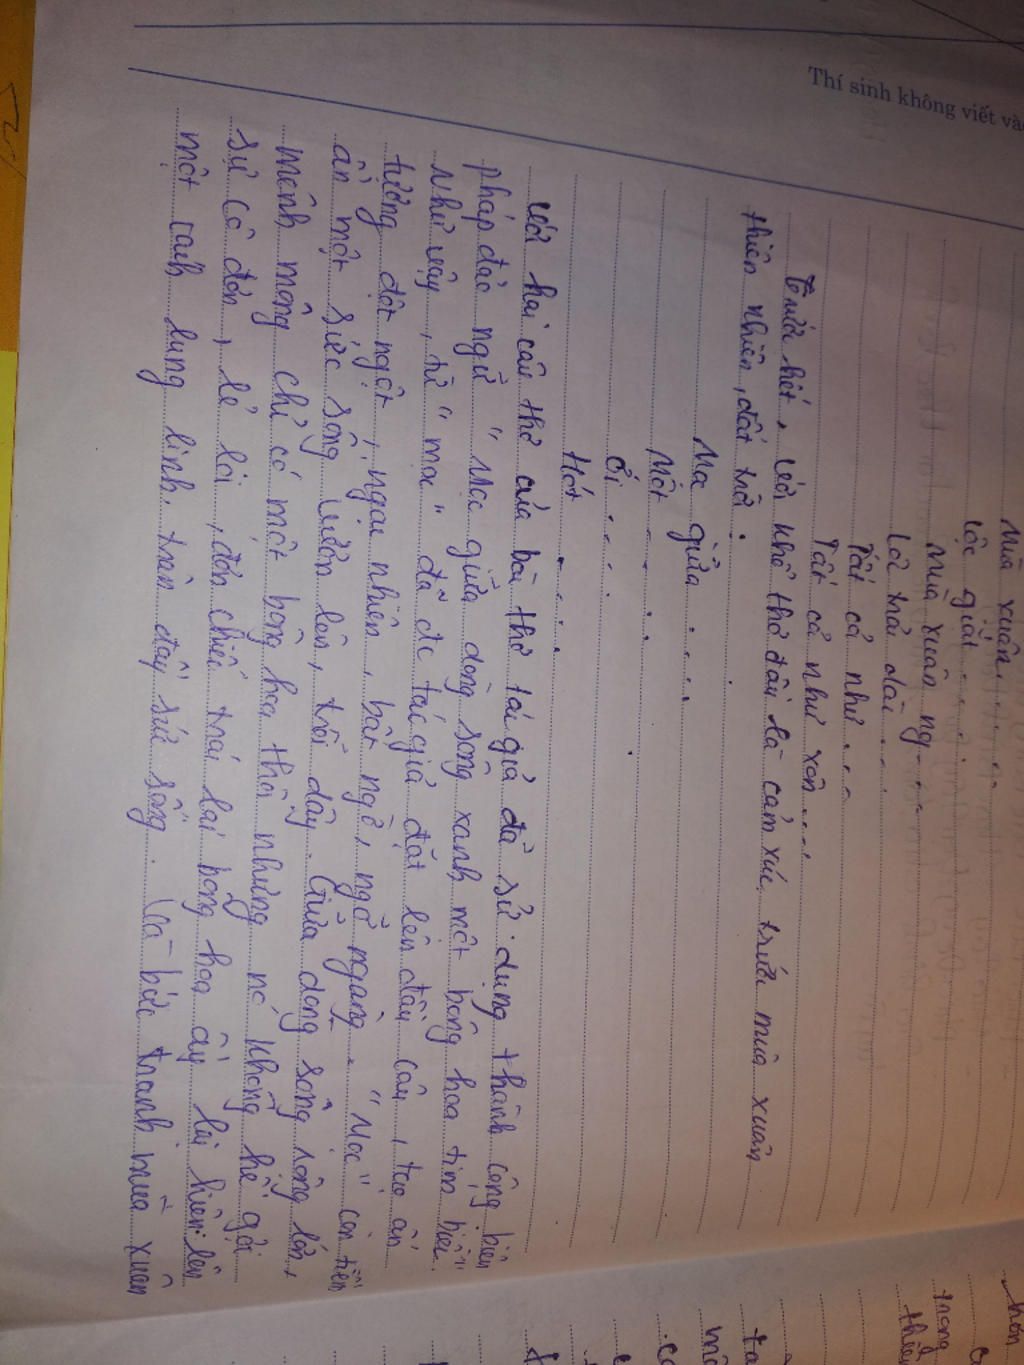 Thí sinh không viết và
Mùa xuân
Lộc giắt
Mùa xuân ng
Lộc trải dài
Tất cả như
Tất cả như xôn....
Trước hết, với khổ thơ đầu là cảm xúc trước mùa xuân
thiên nhiên, đất trời.
Mọc giữa
Một
Ơi
Hót
Với hai câu thơ của bài thơ tác giả đã sử dụng thành công biện
pháp đảo ngữ "Mọc giữa dòng sông xanh một bông hoa tím biếc".
Như vậy, từ "mọc" đã đc tác giả đặt lên đầu câu, tạo ấn
tượng đột ngột, ngạc nhiên, bất ngờ, ngỡ ngàng. "Mọc" còn tiềm
ẩn một sức sống vươn lên, trỗi dậy. Giữa dòng sông rộng lớn,
mênh mông chỉ có một bông hoa thôi nhưng nó không hề gợi
sự cô đơn, lẻ loi, đơn chiếc trái lại bông hoa ấy lại hiện lên
một cách lung linh, tràn đầy sức sống. Cả bức tranh mùa xuân
hơn
trong
thiê
ta